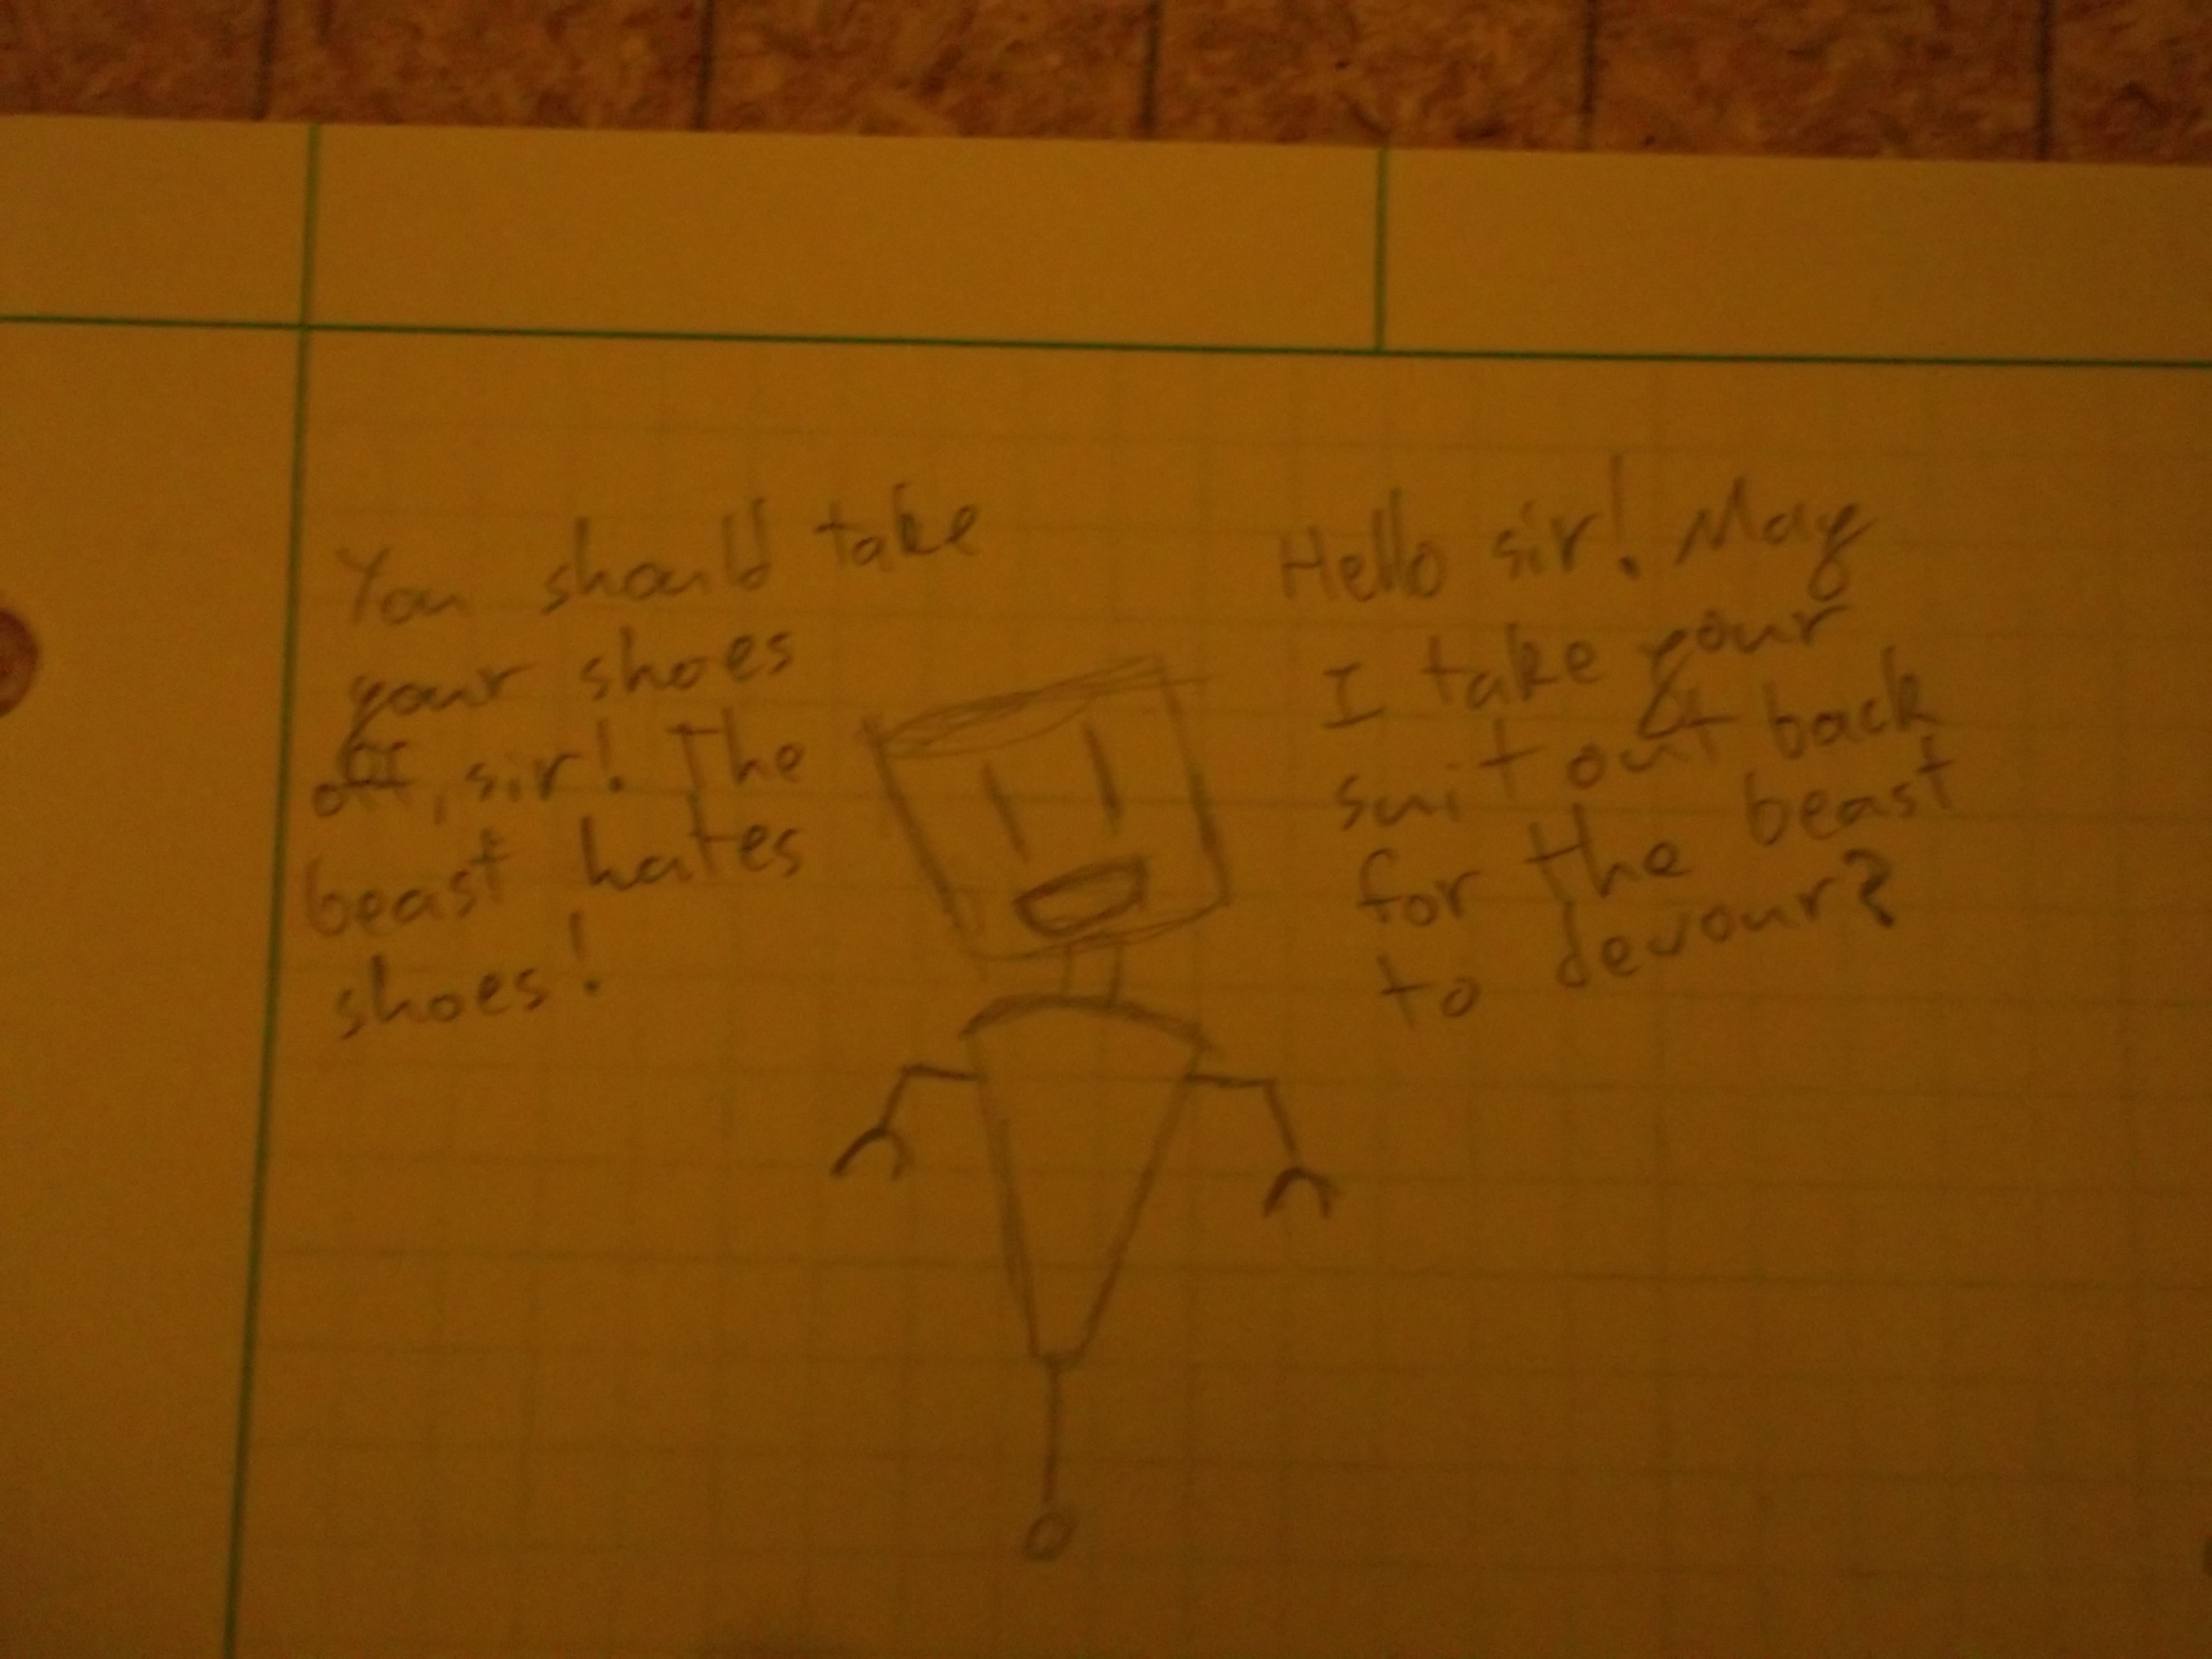 You should take
your shoes
off, sir! The
beast hates
shoes!
Hello sir! May
I take your
suit out back
for the beast
to devour?